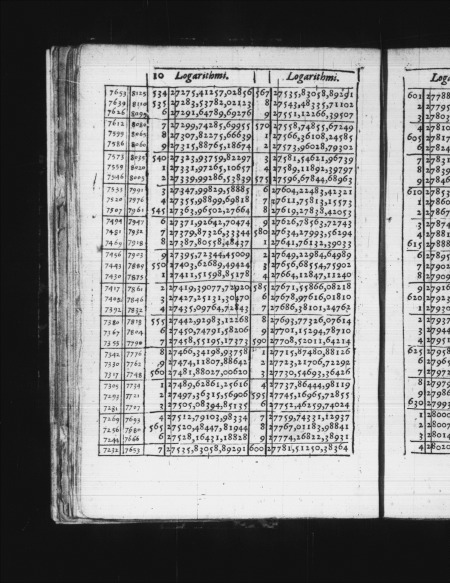 10 Logarithmi. Logarithmi. Loga
7653 8125 534 27275,41257,02856 567 27535,83058,89291 601 27788
7639 8110 535 27283,53782,02123 8 27543,48335,71102 2 2779
7626 8095 6 27291,64789,69276 9 27551,12266,39507 3 27803
7612 8080 7 27299,74285,69955 570 27558,74855,67249 4 27810
7599 8065 8 27307,82275,66639 1 27566,36108,24585 605 27817
7586 8050 9 27315,88765,18674 2 27573,96028,79302 6 27824
7573 8035 540 27323,93759,82297 3 27581,54621,96739 7 2783
7559 8020 1 27331,97265,10657 4 27589,11892,39797 8 27839
7546 8005 2 27339,99286,53839 575 27596,67844,68963 9 27846
7533 7991 3 27347,99829,58885 6 27604,22483,42321 610 27853
7520 7976 4 27355,98899,69818 7 27611,75813,15573 1 27860
7507 7961 545 27363,96502,27664 8 27619,27838,42053 2 27867
7494 7947 6 27371,92642,70474 9 27626,78563,72743 3 27874
7481 7932 7 27379,87326,33344 580 27634,27993,56294 4 27881
7469 7918 8 27387,80558,48437 1 27641,76132,39033 615 27888
7456 7903 9 27395,72344,45009 2 27649,22984,64989 6 27895
7443 7889 550 27403,62689,49424 3 27656,68554,75902 7 27902
7430 7875 1 27411,51598,85178 4 27664,12847,11240 8 27909
7417 7861 2 27419,39077,72920 585 27671,55866,08218 9 27916
7405 7846 3 27427,25131,30470 6 27678,97616,01810 620 27923
7392 7832 4 27435,09764,72843 7 27686,38101,24762 1 27930
7380 7818 555 27442,92983,12268 8 27693,77326,07614 2 27937
7367 7804 6 27450,74791,58206 9 27701,15294,78710 3 27944
7355 7790 7 27458,55195,17373 590 27708,52011,64214 4 27951
7342 7776 8 27466,34198,93758 1 27715,87480,88126 625 27958
7330 7762 9 27474,11807,88642 2 27723,21706,72292 6 27965
7317 7748 560 27481,88027,00620 3 27730,54693,36426 7 27972
7305 7734 1 27489,62861,25616 4 27737,86444,98119 8 27979
7293 7721 2 27497,36315,56906 595 27745,16965,72855 9 27986
7281 7707 3 27505,08394,85135 6 27752,46259,74024 630 27993
7269 7693 4 27512,79103,98334 7 27759,74331,12937 1 28000
7256 7680 565 27520,48447,81944 8 27767,01183,98841 2 28007
7244 7666 6 27528,16431,18828 9 27774,26822,38931 3 28014
7232 7653 7 27535,83058,89291 600 27781,51250,38364 4 28020